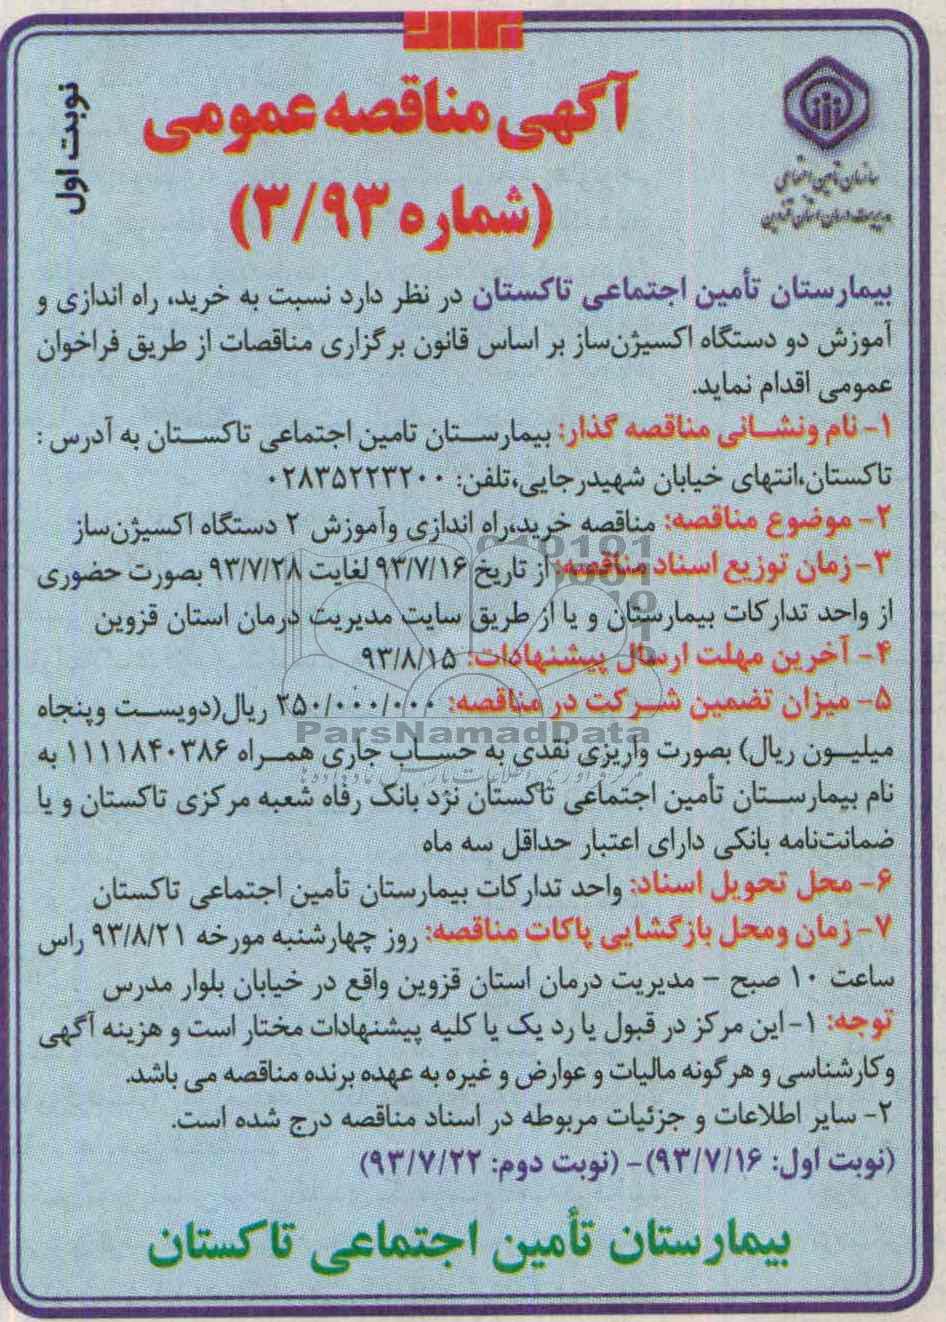 نوبت اول
سازمان تامین اجتماعی
مدیریت درمان استان قزوین
آگهی مناقصه عمومی
(شماره ۳/۹۳)
بیمارستان تأمین اجتماعی تاکستان در نظر دارد نسبت به خرید، راه اندازی و
آموزش دو دستگاه اکسیژن‌ساز بر اساس قانون برگزاری مناقصات از طریق فراخوان
عمومی اقدام نماید.
۱- نام ونشانی مناقصه گذار: بیمارستان تامین اجتماعی تاکستان به آدرس :
تاکستان،انتهای خیابان شهیدرجایی،تلفن: ۰۲۸۳۵۲۲۳۲۰۰
۲- موضوع مناقصه: مناقصه خرید،راه اندازی وآموزش ۲ دستگاه اکسیژن‌ساز
۳- زمان توزیع اسناد مناقصه: از تاریخ ۹۳/۷/۱۶ لغایت ۹۳/۷/۲۸ بصورت حضوری
از واحد تدارکات بیمارستان و یا از طریق سایت مدیریت درمان استان قزوین
۴- آخرین مهلت ارسال پیشنهادات: ۹۳/۸/۱۵
۵- میزان تضمین شرکت در مناقصه: ۲۵۰/۰۰۰/۰۰۰ ریال(دویست وپنجاه
ParsNamadData
میلیون ریال) بصورت واریزی نقدی به حساب جاری همراه ۱۱۱۱۸۴۰۳۸۶ به
نام بیمارستان تأمین اجتماعی تاکستان نزد بانک رفاه شعبه مرکزی تاکستان و یا
ضمانت‌نامه بانکی دارای اعتبار حداقل سه ماه
۶- محل تحویل اسناد: واحد تدارکات بیمارستان تأمین اجتماعی تاکستان
۷- زمان ومحل بازگشایی پاکات مناقصه: روز چهارشنبه مورخه ۹۳/۸/۲۱ راس
ساعت ۱۰ صبح - مدیریت درمان استان قزوین واقع در خیابان بلوار مدرس
توجه: ۱-این مرکز در قبول یا رد یک یا کلیه پیشنهادات مختار است و هزینه آگهی
وکارشناسی و هرگونه مالیات و عوارض و غیره به عهده برنده مناقصه می باشد.
۲- سایر اطلاعات و جزئیات مربوطه در اسناد مناقصه درج شده است.
(نوبت اول: ۹۳/۷/۱۶)- (نوبت دوم: ۹۳/۷/۲۲)
بیمارستان تأمین اجتماعی تاکستان